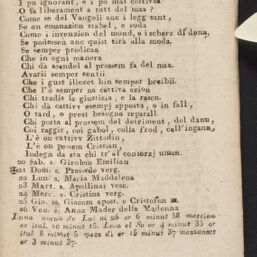 I pu ignorant, e i pu mal coltivaa
O fa liberament a tutt del maa ?
Come se del Vangeli anc i legg sant,
Se on emanazion stabel, e soda
Come i invenzion del mond, e i scherz d'donna,
Se podessen anc quist tirà alla moda.
Se semper prodicaa
Che in ogni manera
Chi dà scandel al prossem fa del maa.
Avarii semper sentii
Che i gust illezet hin semper breibii.
Che l'è semper na cattiva azion
Chi tradis la giustizia, e la rason.
Chi dà cattivv esempj apposta, o in fall,
O tard, o prest besogna reparall.
Chi porta al prossem del detriment, del dann,
Coi raggir, coi gabol, colla frod, cell'ingann,
L'è on cattivv Zittadin,
L'è on pessem Cristian,
Indegn da sta chi tr'al consorzj uman.
20 Sab. s. Girolem Emilian
21 Dom. s. Prasede verg.
22 Lun. s. Maria Maddalena
23 Mart. s. Apollinar vesc.
24 Merc. s. Cristina verg.
25 Gio. ss. Giacom apost. e Cristofen m.
26 Ven. s. Anna Mader della Madonna
Luna nœuva de Lui ai 26 or 6 minut 58 mattina
or ital. 10 minut 15. Leva el So or 4 minut 35 or
ital. 8 minut 5 meza dì or 16 minut 37 mezanott
or 3 minut 37.